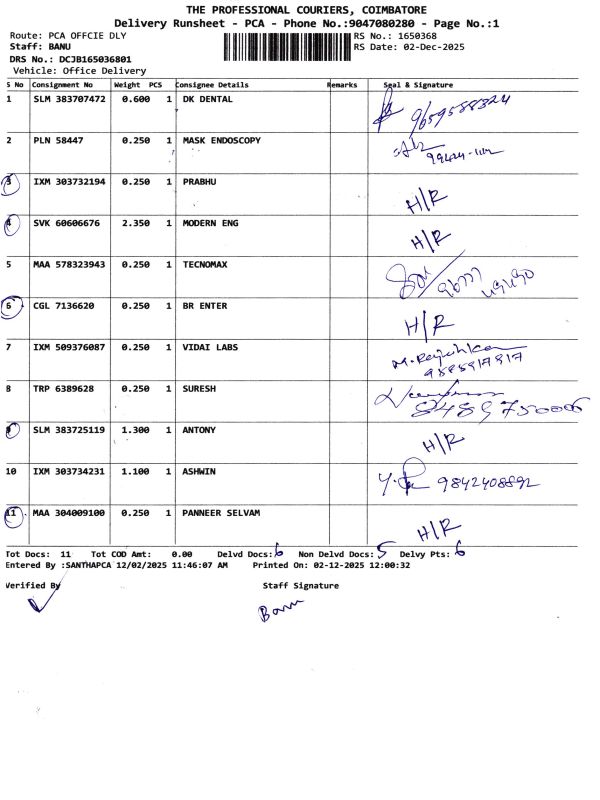 THE PROFESSIONAL COURIERS, COIMBATORE
Delivery Runsheet - PCA - Phone No.:9047080280 - Page No.:1
Route: PCA OFFCIE DLY RS No.: 1650368
Staff: BANU RS Date: 02-Dec-2025
DRS No.: DCJB165036801
Vehicle: Office Delivery
S No Consignment No Weight PCS Consignee Details Remarks Seal & Signature
1 SLM 383707472 0.600 1 DK DENTAL 9659588324
2 PLN 58447 0.250 1 MASK ENDOSCOPY
3 IXM 303732194 0.250 1 PRABHU H/R
4 SVK 60606676 2.350 1 MODERN ENG H/R
5 MAA 578323943 0.250 1 TECNOMAX
6 CGL 7136620 0.250 1 BR ENTER H/R
7 IXM 509376087 0.250 1 VIDAI LABS
8 TRP 6389628 0.250 1 SURESH
9 SLM 383725119 1.300 1 ANTONY H/R
10 IXM 303734231 1.100 1 ASHWIN 9842408892
11 MAA 304009100 0.250 1 PANNEER SELVAM H/R
Tot Docs: 11 Tot COD Amt: 0.00 Delvd Docs: 6 Non Delvd Docs: 5 Delvy Pts: 6
Entered By :SANTHAPCA 12/02/2025 11:46:07 AM Printed On: 02-12-2025 12:00:32
Verified By Staff Signature
Banu